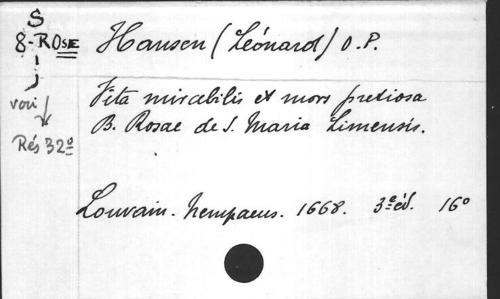 S
8-ROSE
Hansen (Léonard) O.P.
Vita mirabilis et mors pretiosa
voir
B. Rosae de S. Maria Limensis.
Rés 32º
Louvain. Nempaeus. 1668. 3e éd. 16º